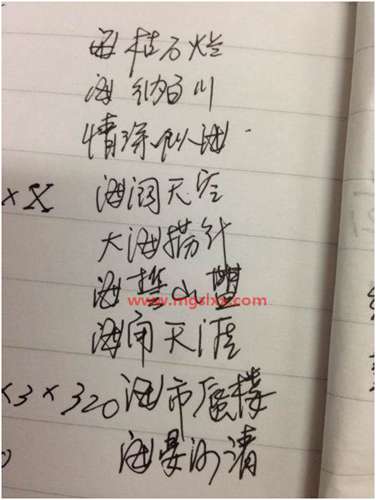 海枯石烂
海纳百川
情深似海.
×X 海阔天空
大海捞针
海誓山盟
海角天涯
×3×320 海市蜃楼
海晏河清